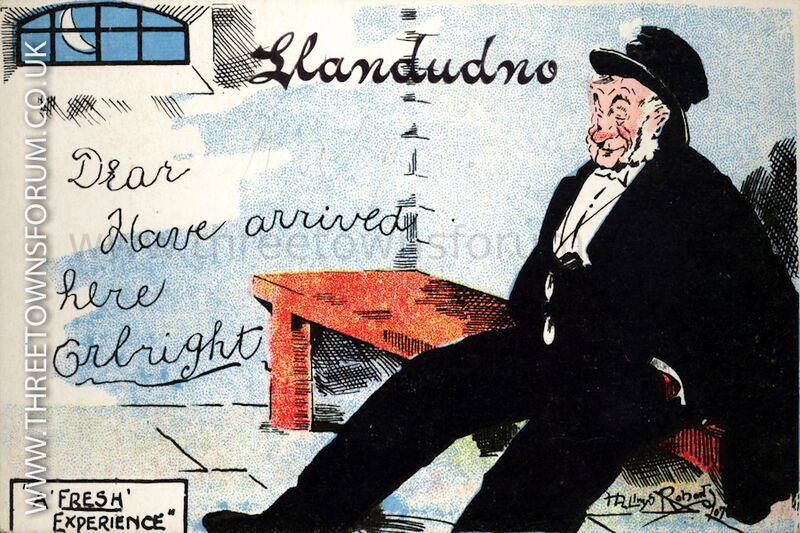 Llandudno
Dear
Have arrived
here
Orlright
"A 'FRESH'
EXPERIENCE"
Roberts
07
WWW.THREETOWNSFORUM.CO.UK
www.threetownsforum